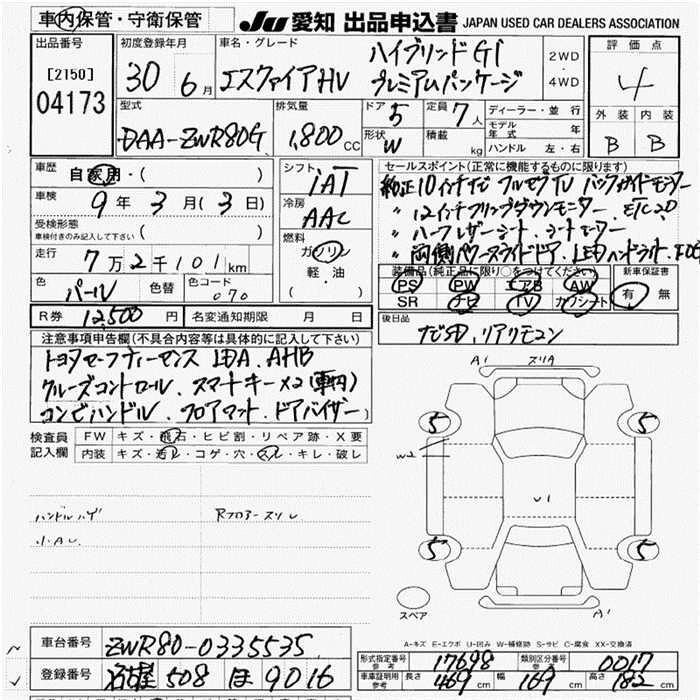 車内保管・守衛保管
JU 愛知 出品申込書 JAPAN USED CAR DEALERS ASSOCIATION
出品番号
[2150]
04173
初度登録年月
30 6月
車名・グレード
ハイブリッドGi
エスクァイアHV プレミアムパッケージ
2WD
・
4WD
評価点
4
外装 内装
B B
型式
DAA-ZWR80G
排気量
1,800cc
ドア 5
形状 W
定員 7人
積載 kg
ディーラー・並行
モデル年式 年
ハンドル 左・右
車歴 自家用・( )
車検 9年3月(3日)
受検形態
車検付きのみ記入して下さい ( )
走行 7万2千101km
色 パール 色替 色コード 070
シフト
IAT
冷房
AAC
燃料
ガソリン
軽・油
( )
R券 12,500円 名変通知期限 月 日
セールスポイント(正常に機能するものに限ります)
純正10インチナビ フルセグTV バックガイドモニター
〃 12インチフリップダウンモニター、ETC2.0
〃 ハーフレザーシート、シートヒーター
〃 両側パワースライドドア、LEDハンドライト、FOG
装備品(純正品に限り○をつけてください)
PS PW エアB AW
SR ナビ TV カワシート
新車保証書
有・無
後日品
ナビSD、リアリモコン
注意事項申告欄(不具合内容等は具体的に記入して下さい)
トヨタセーフティーセンス LDA、AHB
クルーズコントロール、スマートキー×2(車内)
コンビハンドル、フロアマット、ドアバイザー
検査員記入欄
FW キズ・飛石・ヒビ割・リペア跡・X要
内装 キズ・汚レ・コゲ・穴・スレ・キレ・破レ
ハンドルハゲ Rフロアースリレ
小AU
A1 スリA
5 5
W2
U1
5 5
スペア
A1
A-キズ E-エクボ U-凹み W-補修跡 S-サビ C-腐食 XX-交換済
車台番号 ZWR80-0335535
登録番号 名古屋 508 ほ 9016
形式指定番号 参考 17698 類別区分番号 参考 0017
車庫証明用 参考 長さ 469cm 幅 169cm 高さ 182cm